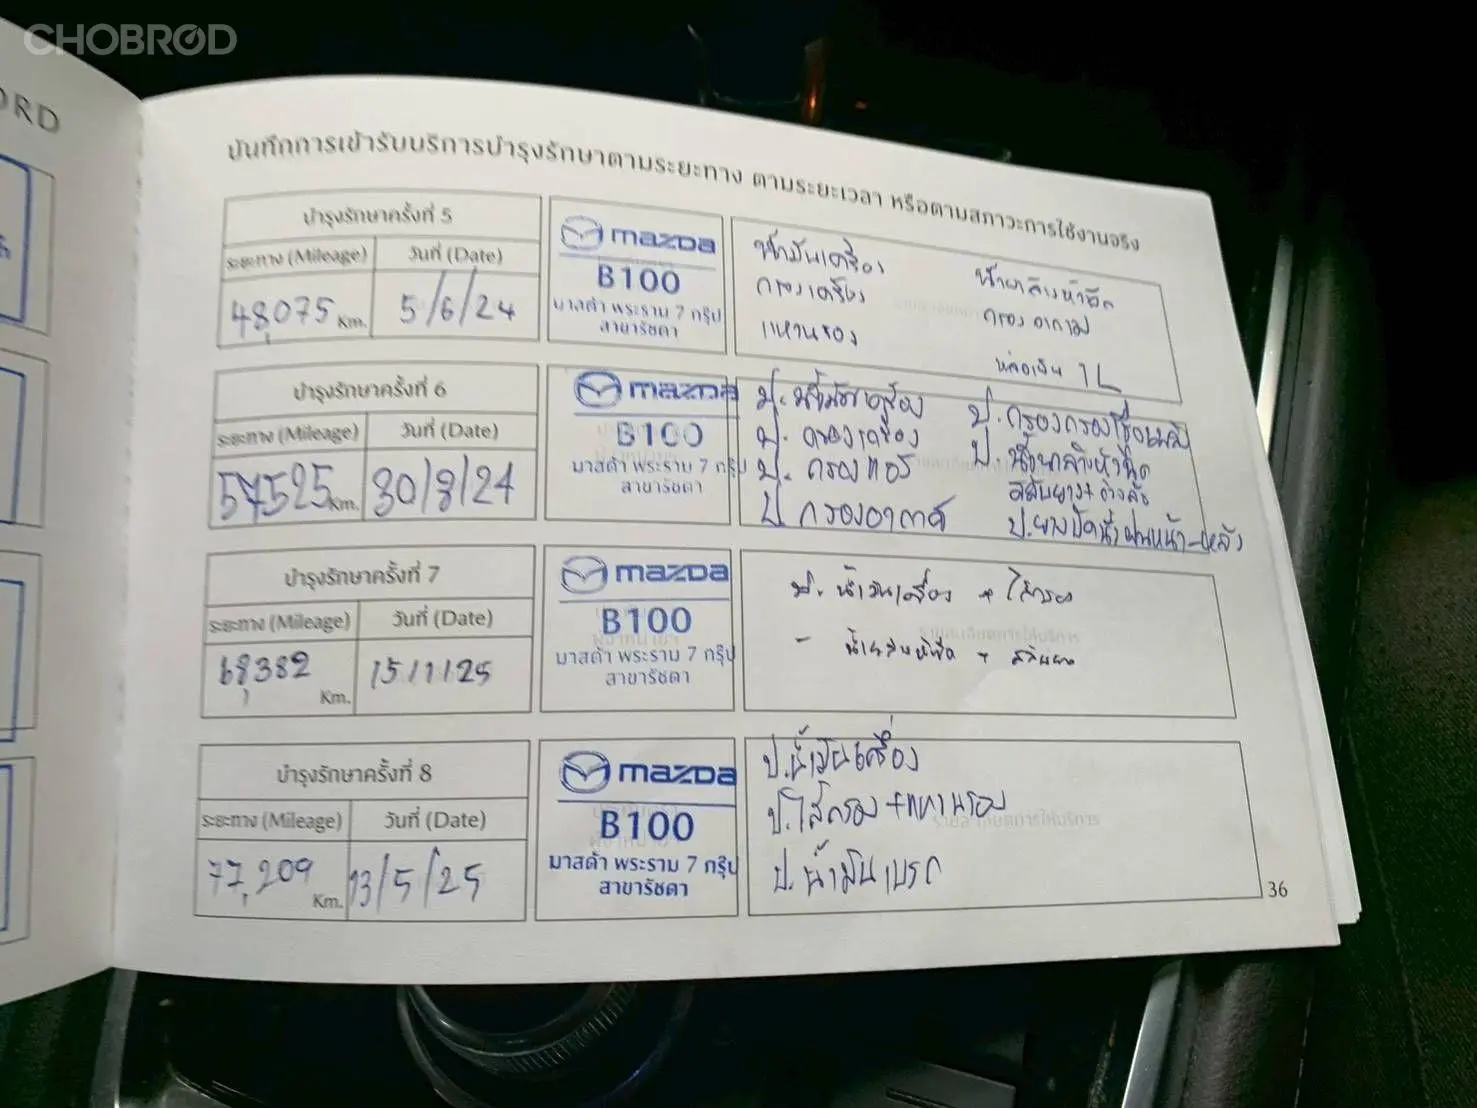 CHOBROD
ORD
บันทึกการเข้ารับบริการบำรุงรักษาตามระยะทาง ตามระยะเวลา หรือตามสภาวะการใช้งานจริง
บำรุงรักษาครั้งที่ 5
ระยะทาง (Mileage) วันที่ (Date)
48,075 Km. 5/6/24
mazda
B100
มาสด้า พระราม 7 กรุ๊ป
สาขารัชดา
น้ำมันเครื่อง
กรองเครื่อง
แหวนรอง
น้ำยาล้างหัวฉีด
กรองอากาศ
หล่อเย็น 1L
บำรุงรักษาครั้งที่ 6
ระยะทาง (Mileage) วันที่ (Date)
57525 Km. 30/9/24
mazda
B100
มาสด้า พระราม 7 กรุ๊ป
สาขารัชดา
ป. น้ำมันเครื่อง
ป. กรองเครื่อง
ป. กรองแอร์
ป กรองอากาศ
ป. กรองกรองเชื้อเพลิง
ป. น้ำยาล้างหัวฉีด
สลับยาง + ถ่วงล้อ
ป. ยางปัดน้ำฝนหน้า-หลัง
บำรุงรักษาครั้งที่ 7
ระยะทาง (Mileage) วันที่ (Date)
68,382 Km. 15/1/25
mazda
B100
มาสด้า พระราม 7 กรุ๊ป
สาขารัชดา
ป. น้ำมันเครื่อง + ไส้กรอง
- น้ำยาล้างหัวฉีด + สลับยาง
รายละเอียดการให้บริการ
บำรุงรักษาครั้งที่ 8
ระยะทาง (Mileage) วันที่ (Date)
77,209 Km. 13/5/25
mazda
B100
มาสด้า พระราม 7 กรุ๊ป
สาขารัชดา
ป. น้ำมันเครื่อง
ป. ไส้กรอง + แหวนรอง
ป. น้ำมันเบรก
รายละเอียดการให้บริการ
36